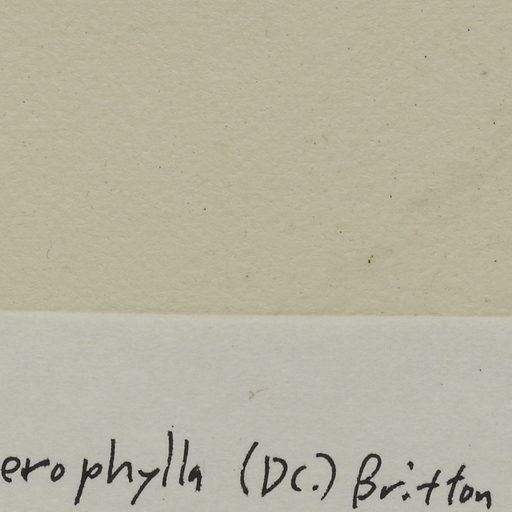 erophylla (DC.) Britton